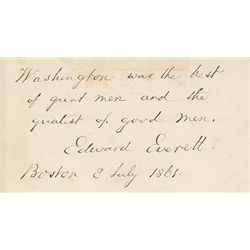 Washington was the best
of great men and the
greatest of good men.
Edward Everett.
Boston 8 July 1861.